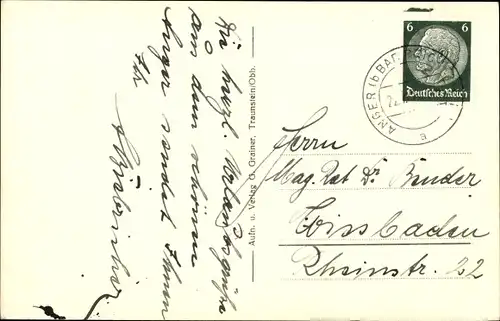 Die herzl. Urlaubsgrüße
aus dem schönen
Anger sendet Ihnen
Ihr
Aufn. u. Verlag G. Greiner, Traunstein/Obb.
6 6
Deutsches Reich
ANGER (b BAD
a
Herrn
Mag. Rat Dr. Bender
Wissbaden
Rheinstr. 22